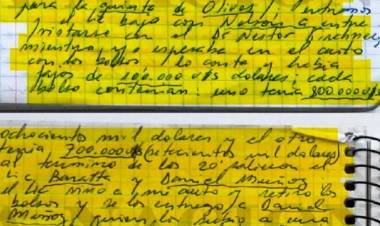 para la quinta de Olivos / Entramos
el Lic bajo con Nelson a entre
vistarse con el Dr Nestor Kirchner
mientra, yo esperaba en el auto
con los bolsos / los conte y habia
fajos de 100.000 U$S dolares; cada
bolso contenian: uno tenia 800.000 U$S
ochociento mil dolares y el otro
tenia 700.000 U$S (setecientos mil dolares)
al termino de los 20' salieron el
Lic Baratta y Daniel Muñoz
el Lic vino a mi auto retiro los
bolsos y se los entrego a Daniel
Muñoz / quien los subio a una